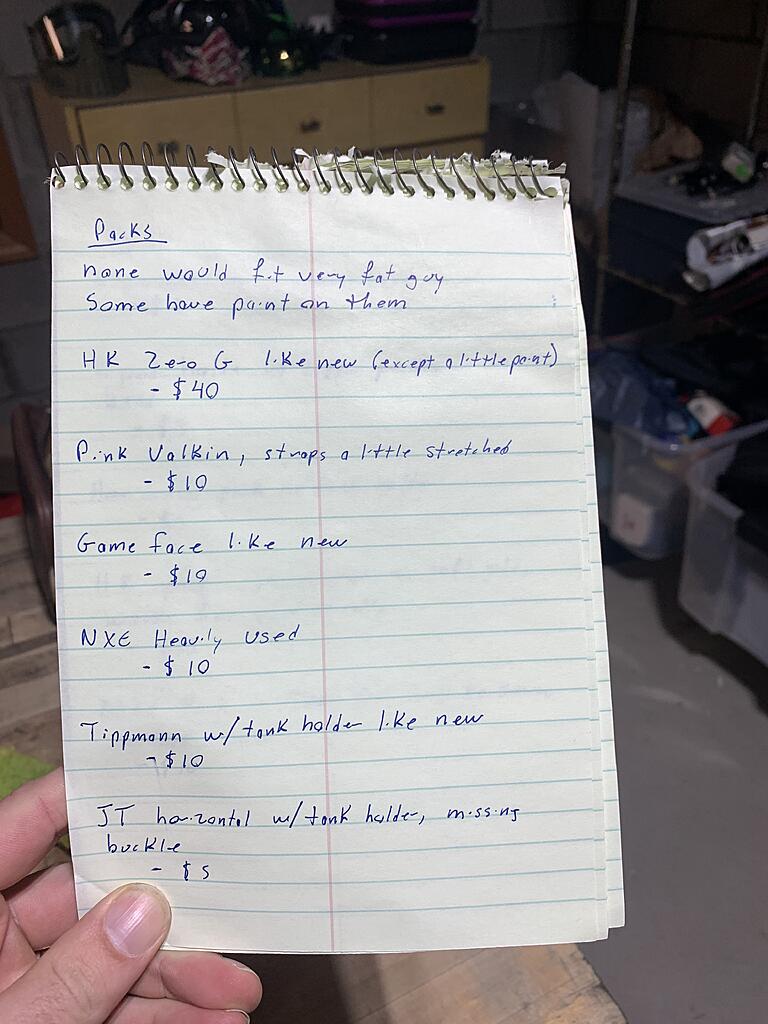 Packs
none would fit very fat guy
Some have paint on them
HK Zero G like new (except a little paint)
- $40
Pink Valkin, straps a little stretched
- $10
Game face like new
- $10
NXE Heavily used
- $10
Tippmann w/tank holder like new
- $10
JT horizontal w/tank holder, missing
buckle
- $5